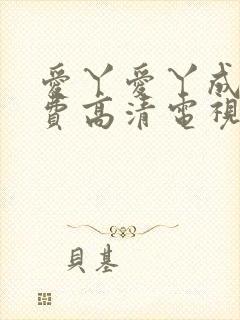 愛丫愛丫成
費高清電視
貝基